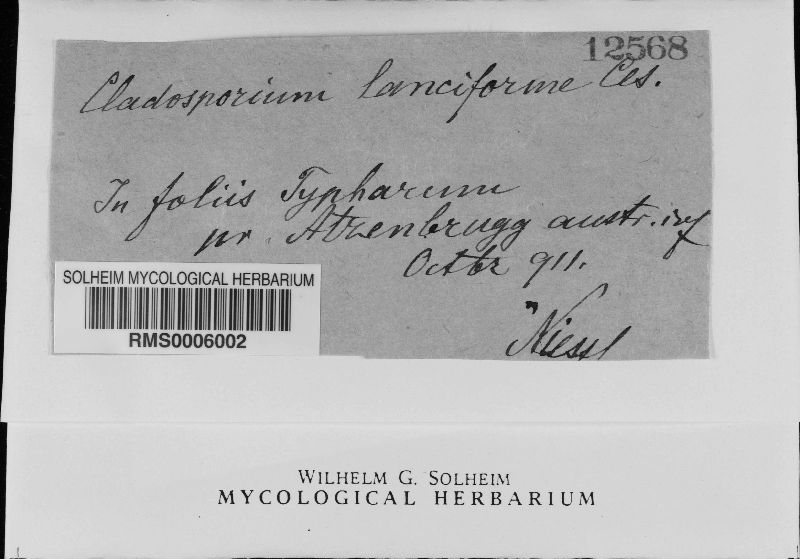 12568
Cladosporium lanciforme Ces.
In foliis Typharum
pr. Atzenbrugg austr. inf
Octbr 911.
Niessl
SOLHEIM MYCOLOGICAL HERBARIUM
RMS0006002
WILHELM G. SOLHEIM
MYCOLOGICAL HERBARIUM